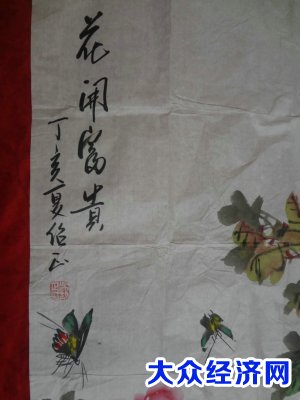 花开富贵
丁亥夏绍正
大众经济网